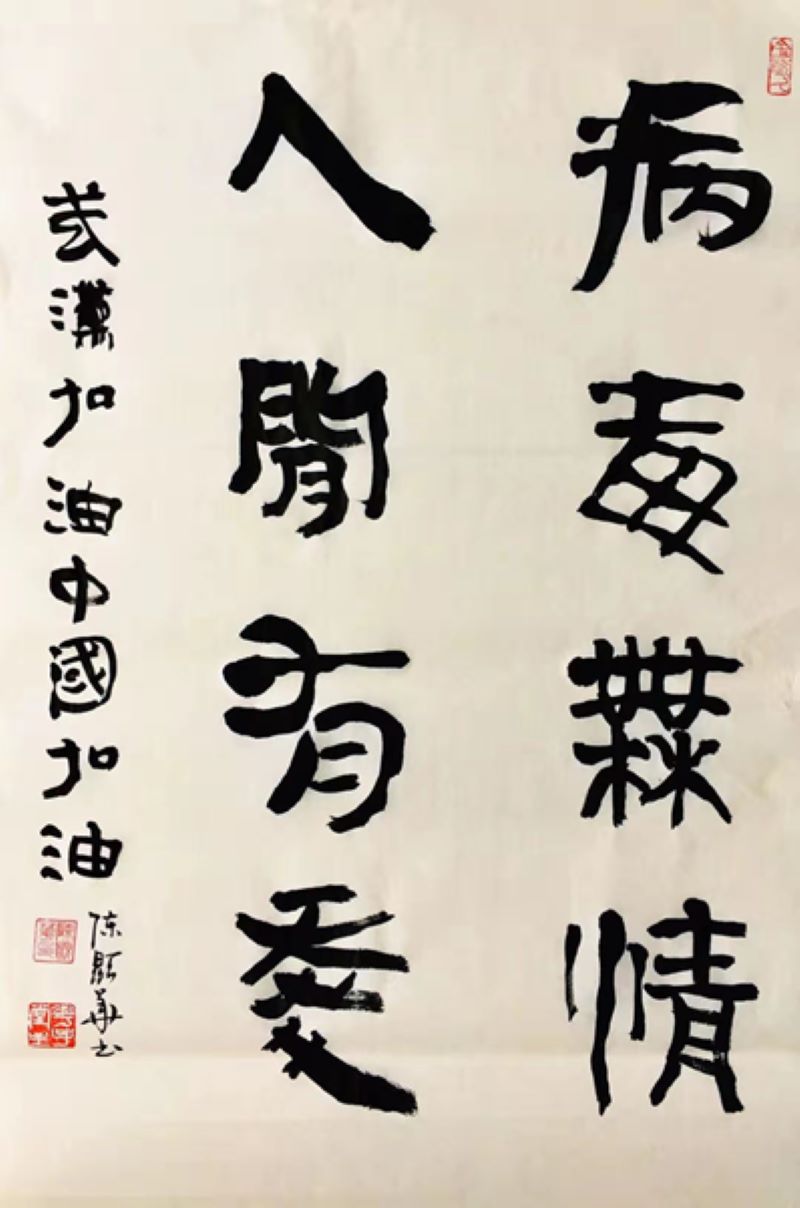 病毒無情
人間有愛
武漢加油中國加油
陈
華书